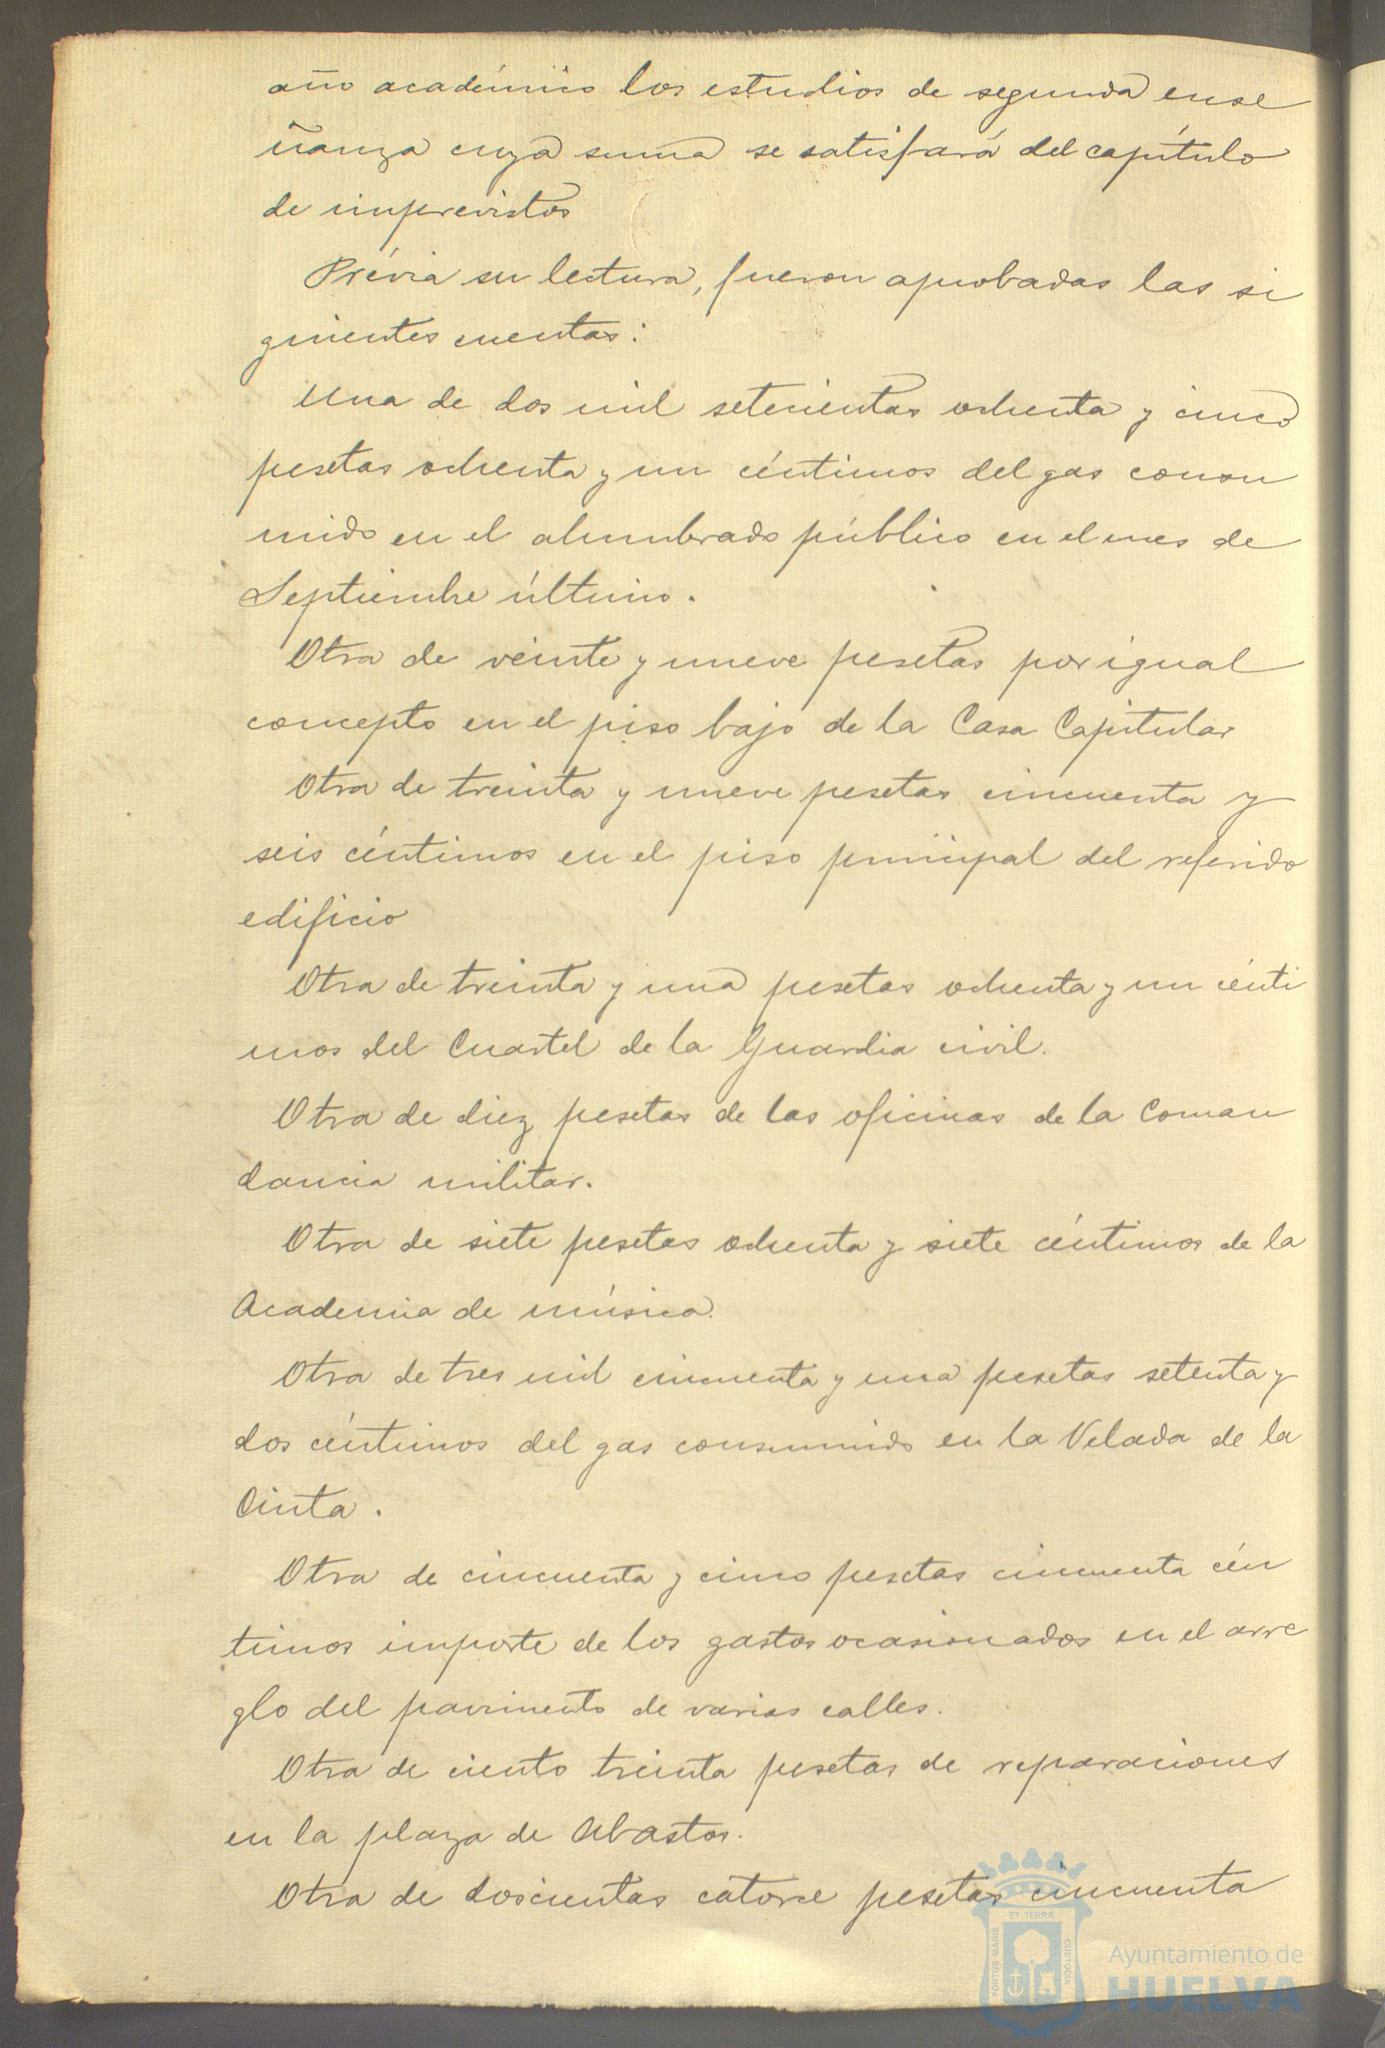 año académico los estudios de segunda ense
ñanza cuya suma se satisfará del capítulo
de imprevistos
Prévia su lectura, fueron aprobadas las si
guientes cuentas:
Una de dos mil setecientas ochenta y cinco
pesetas ochenta y un céntimos del gas consu
mido en el alumbrado público en el mes de
Septiembre último.
Otra de veinte y nueve pesetas por igual
concepto en el piso bajo de la Casa Capitular
Otra de treinta y nueve pesetas cincuenta y
seis céntimos en el piso principal del referido
edificio
Otra de treinta y una pesetas ochenta y un cénti
mos del Cuartel de la Guardia civil.
Otra de diez pesetas de las oficinas de la Coman
dancia militar.
Otra de siete pesetas ochenta y siete céntimos de la
Academia de música.
Otra de tres mil cincuenta y una pesetas setenta y
dos céntimos del gas consumido en la Velada de la
Cinta.
Otra de cincuenta y cinco pesetas cincuenta cén
timos importe de los gastos ocasionados en el arre
glo del pavimento de varias calles.
Otra de ciento treinta pesetas de reparaciones
en la plaza de Abastos.
Otra de doscientas catorce pesetas cincuenta
PORTUS MARIS ET TERRÆ CUSTODIA
Ayuntamiento de
HUELVA